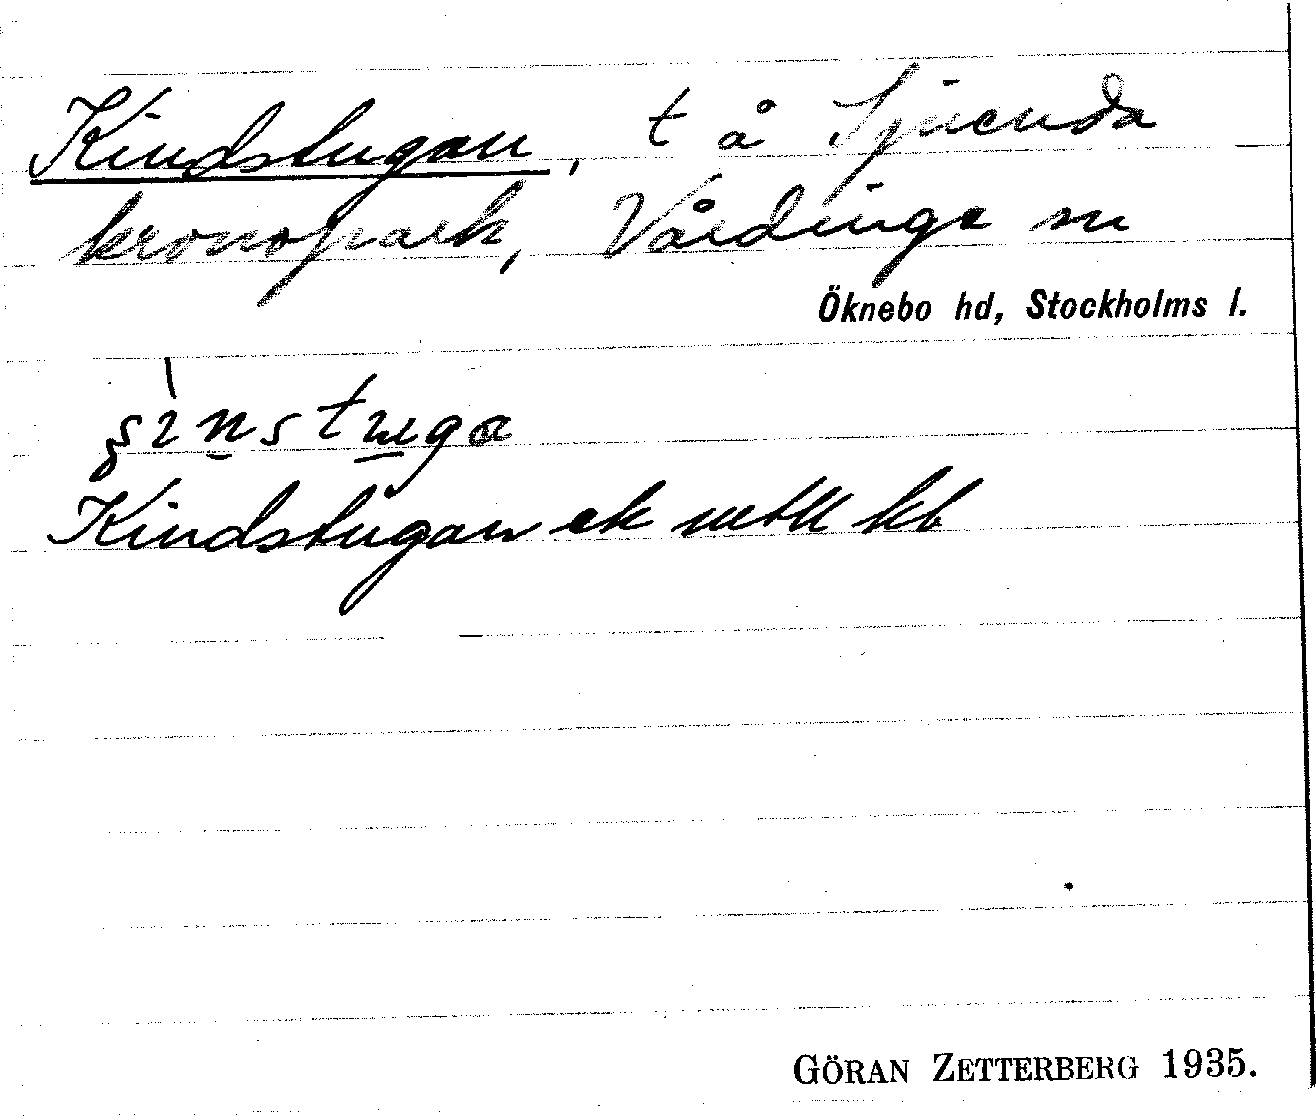 Kindstugan, t å Sjuenda
kronopark, Vårdinge sn
Öknebo hd, Stockholms l.
Kindstugan ek
GÖRAN ZETTERBERG 1935.